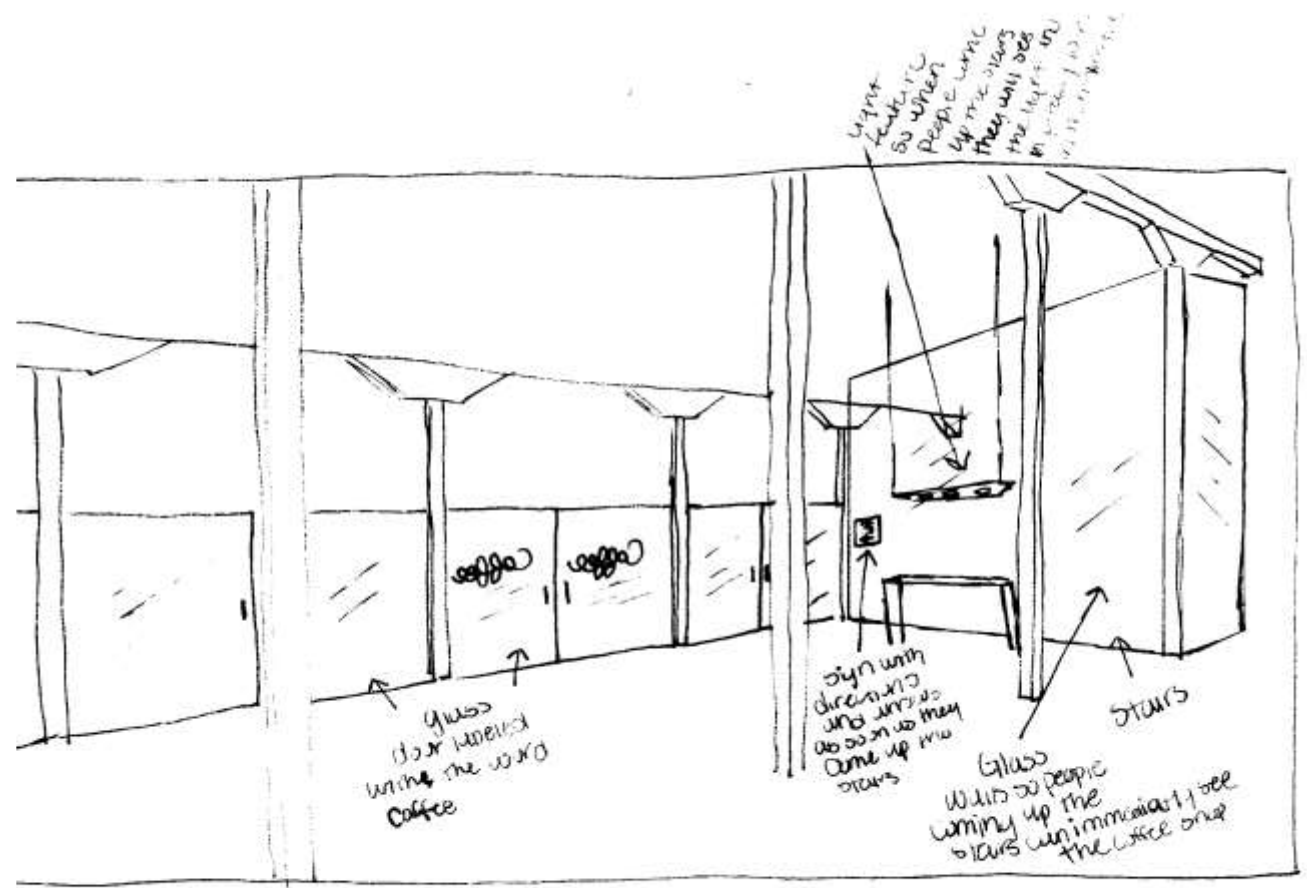 light
feature
so when
people come
up the stairs
they will see
the light in
Coffee
Coffee
glass
door labeled
with the word
coffee
sign with
directions
and
as soon as they
come up the
stairs
Stairs
Glass
walls so people
coming up the
stairs can immediatly see
the coffee shop